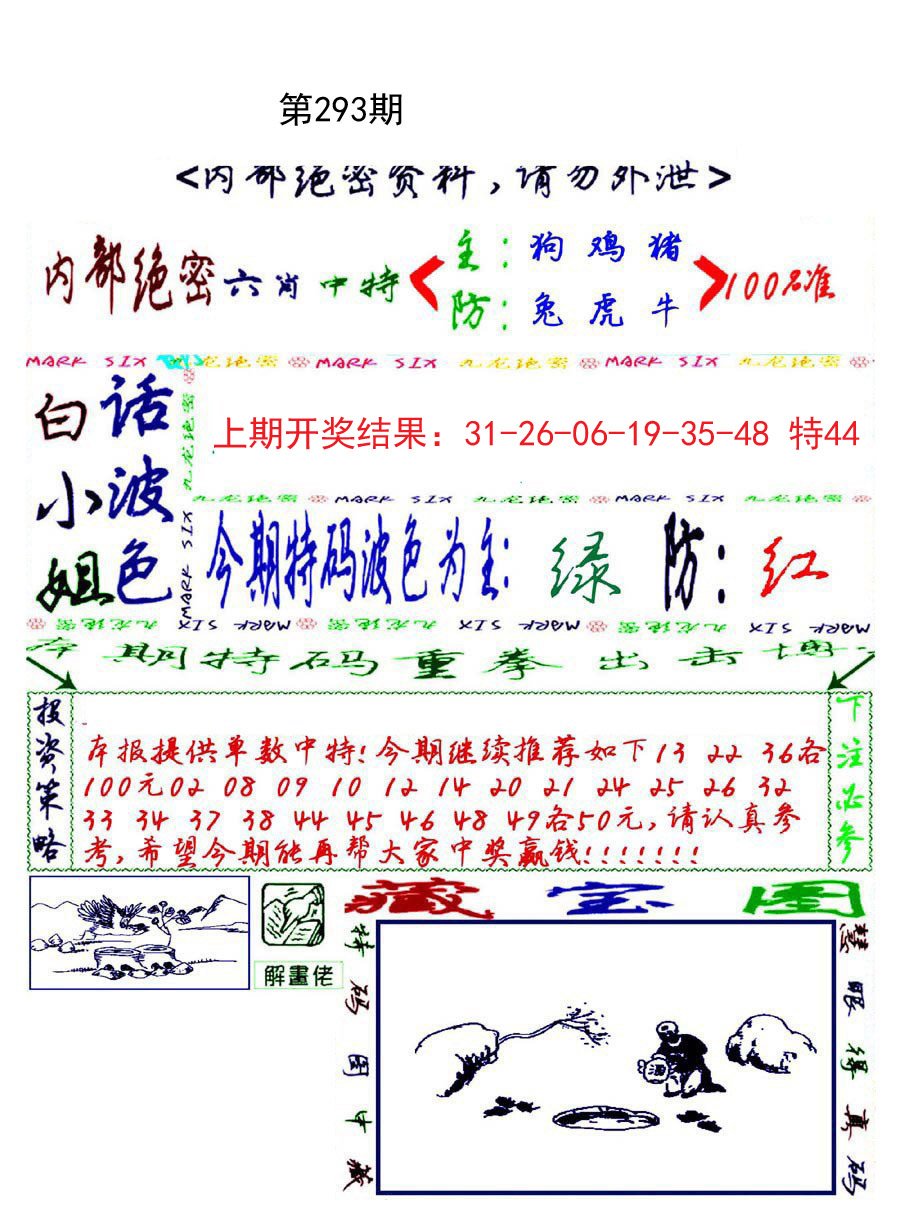 第293期
<内部绝密资料,请勿外泄>
内部绝密六肖中特
主:狗 鸡 猪
防:兔 虎 牛
100%准
MARK SIX 九龙绝密 MARK SIX 九龙绝密 MARK SIX 九龙绝密
白话
小波
姐色
九龙绝密
MARK SIX
上期开奖结果：31-26-06-19-35-48 特44
九龙绝密 MARK SIX 九龙绝密 MARK SIX 九龙绝密
今期特码波色为主:绿 防:红
九龙绝密 MARK SIX 九龙绝密 MARK SIX 九龙绝密 MARK SIX
本期特码重拳出击博
投资策略
本报提供单数中特!今期继续推荐如下13 22 36各
100元02 08 09 10 12 14 20 21 24 25 26 32
33 34 37 38 44 45 46 48 49各50元,请认真参
考,希望今期能再帮大家中奖赢钱!!!!!!!
下注必参
解畫佬
藏宝图
特码图中藏
酒
慧眼得真码